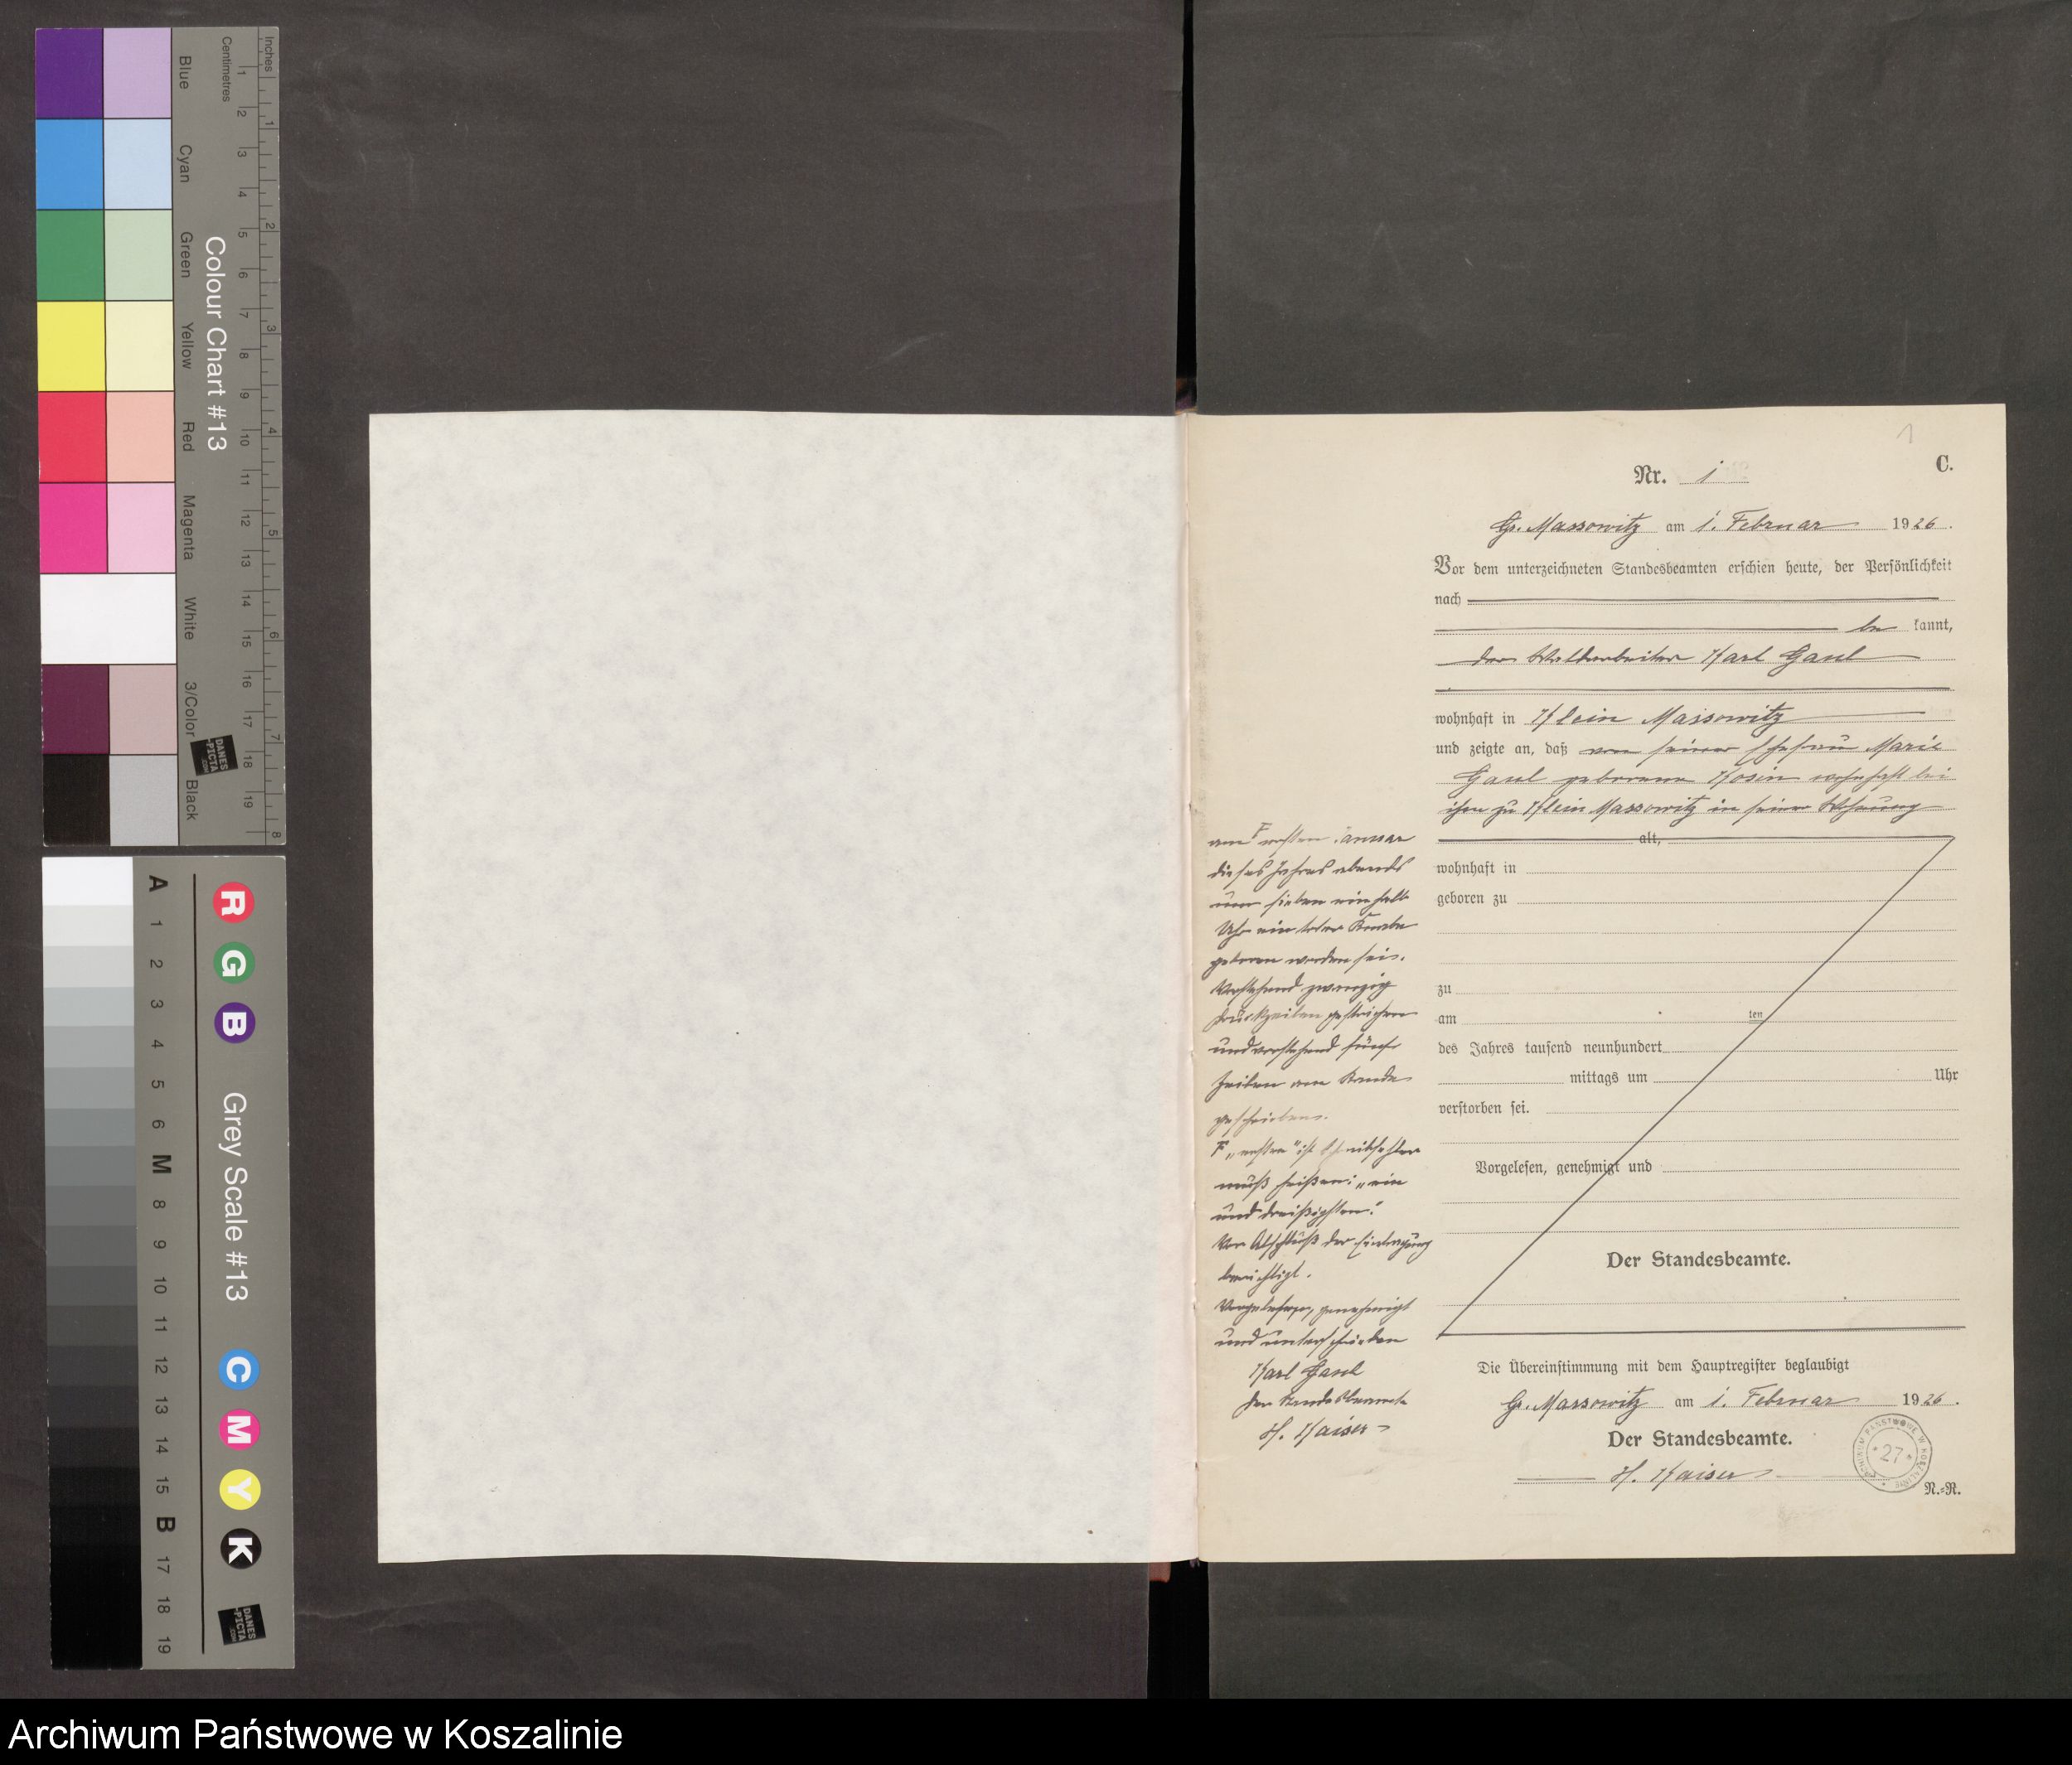 Blue
Cyan
Green
Yellow
Red
Magenta
White
3/Color
Black
Colour Chart #13
Centimetres
Inches
1 2 3 4 5 6 7 8 9 10 11 12 13 14 15 16 17 18 19
1 2 3 4 5 6 7 8
DANES
-PICTA
.COM
A 1 2 3 4 5 6 M 8 9 10 11 12 13 14 15 B 17 18 19
R G B
Grey Scale #13
C M Y K
DANES
-PICTA
.COM
1
C.
Nr. 1
Gr. Massowitz am 1. Februar 1926.
Vor dem unterzeichneten Standesbeamten erschien heute, der Persönlichkeit
nach
be kannt,
der Waldarbeiter Karl Gaul
wohnhaft in Klein Massowitz
und zeigte an, daß von seiner Ehefrau Marie
Gaul geborene Kosin wohnhaft bei
ihm zu Klein Massowitz in seiner Wohnung
alt,
wohnhaft in
geboren zu
zu
am ten
des Jahres tausend neunhundert
mittags um Uhr
verstorben sei.
Vorgelesen, genehmigt und
Der Standesbeamte.
am F ersten Januar
dieses Jahres abends
um sieben einhalb
Uhr ein toter Knabe
geboren worden sei.
Vorstehend zwanzig
Druckzeilen gestrichen
und vorstehend fünf
Zeilen am Rande
geschrieben.
F „ersten" ist Schreibfehler
muß heißen: „ein
und dreißigsten".
Vor Abschluß der Eintragung
berichtigt.
Vorgelesen, genehmigt
und unterschrieben
Karl Gaul
Der Standesbeamte
H. Kaiser
Die Übereinstimmung mit dem Hauptregister beglaubigt
Gr. Massowitz am 1. Februar 1926.
Der Standesbeamte.
H. Kaiser
ARCHIWUM PAŃSTWOWE W KOSZALINIE
* 27 *
N.-R.
Archiwum Państwowe w Koszalinie